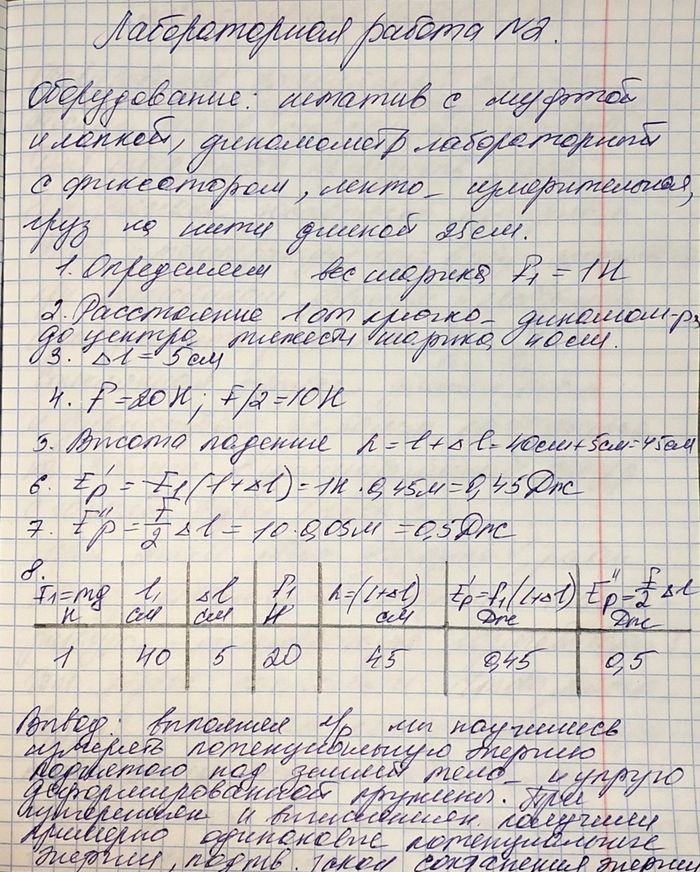 Лабораторная работа N2.
Оборудование: штатив с муфтой
и лапкой, динамометр лабораторный
с фиксатором, лента измерительная,
груз на нити длиной 25см.
1. Определяем вес шарика F₁ = 1Н
2. Расстояние l от крючка динамом-ра
до центра тяжести шарика 40см.
3. Δl = 5см
4. F = 20Н; F/2 = 10Н
5. Высота падения h = l + Δl = 40см + 5см = 45см
6. E'p = F₁(l + Δl) = 1Н · 0,45м = 0,45Дж
7. E''p = F/2 Δl = 10 · 0,05м = 0,5Дж
8.
F₁ = mg Н | l, см | Δl см | F₁ Н | h = (l + Δl) см | E'p = F₁(l + Δl) Дж | E''p = F/2 Δl Дж
1 | 40 | 5 | 20 | 45 | 0,45 | 0,5
Вывод: выполняя л/р мы научились
измерять потенциальную энергию
поднятого над землей тела и упруго
деформированной пружины. При
измерении и вычислении получили
примерно одинаковые потенциальные
энергии, подтв. закон сохранения энергии